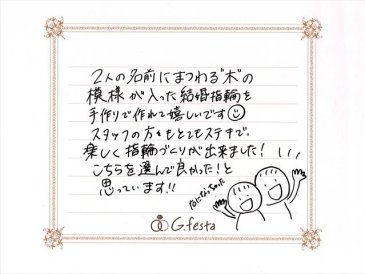 2人の名前にまつわる"木"の
模様が入った結婚指輪を
手作りで作れて嬉しいです
スタッフの方もとてもステキで、
楽しく指輪づくりが出来ました！
こちらを選んで良かった！と
思っています!!
G.festa